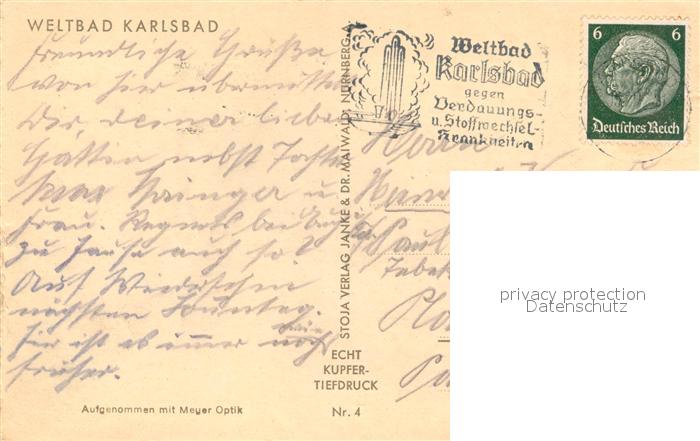 WELTBAD KARLSBAD
Freundliche Grüße
von hier übermittelt
Dir, deiner lieben
Gattin nebst
Max u.
Frau. Regnets bei Euch
zu Hause auch so?
Auf Wiedersehn
nächsten Sonntag.
hier ist es immer noch
früher.
Aufgenommen mit Meyer Optik
STOJA VERLAG JANKE & DR. MAIWALD, NÜRNBERG
ECHT
KUPFER-
TIEFDRUCK
Nr. 4
Weltbad
Karlsbad
gegen
Verdauungs-
u. Stoffwechsel-
Krankheiten
6 6
Deutsches Reich
Herrn
Paul
privacy protection
Datenschutz